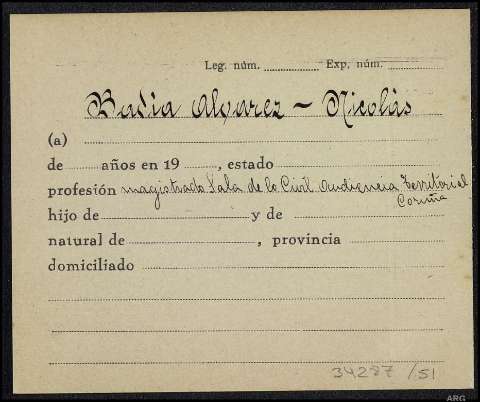 Leg. núm. Exp. núm.
Badia Alvarez - Nicolás
(a)
de años en 19 , estado
profesión magistrado Sala de lo Civil Audiencia Territorial
Coruña
hijo de y de
natural de , provincia
domiciliado
34287/51
ARG